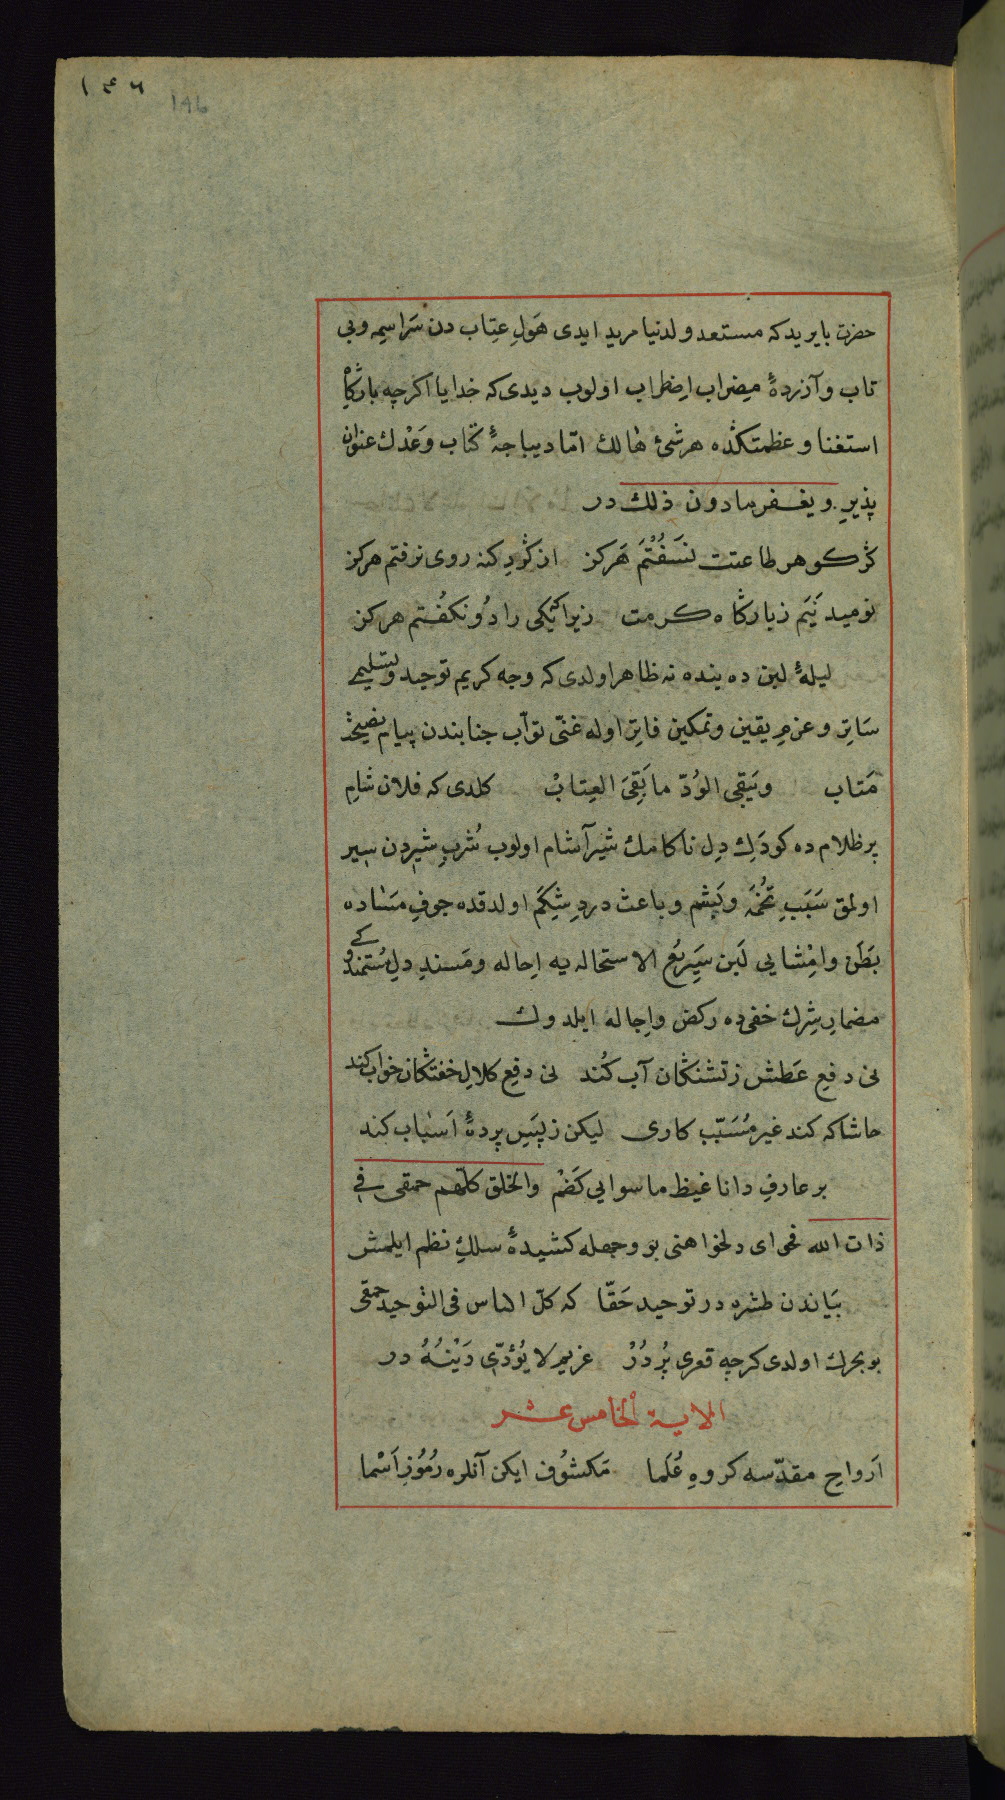 ١٤٦
146
حضرت بايريدكه مستعد ولدنيا مريد ايدى هَولِ عِتاب دن سَراسِيمه وبى
تاب وآزردهٔ مِضراب اِضطراب اولوب ديدى كه خدايا اكرچه باركاهِ
استغنا وعظمتكده هر شئ هالك امّا ديباجهٔ كتاب وَعْدك عنوان
پذيرِ ويغفر مادون ذلك در
كر كوهر طاعتت نسَفُتْمَ هَركز از كردِ كنه روى نرفتم هركز
نوميد نَيَم ز باركاه كرمت زيرا كه يَكى را دُو نكفُتم هركز
ليلهٔ لبن ده بنده نه ظاهر اولدى كه وجه كريم توحيد وتسليمه
سَاتِر وعزمِ يقين وتمكين فاتِر اوله غنّى توّاب جنابندن پيام نصيحت
مَتاب وَيَبقى الوُدّ ما بَقِىَ العِتابْ كلدى كه فلان شامِ
پر ظلام ده كودَكِ دِل ناكامك شير آشام اولوب شُربِ شيردن سير
اولمق سَبَبِ تُخمَه وَبَشم وباعث دردِ شِكَم اولدقده جوفِ مَشاده
بَطَن وامْشايى لَبن سَرِيَعِ الاستحاله يه اِحاله ومَسندِ دلِ مُستمندكى
مضمارِ شِرك خفى ده ركض واِجاله ايلدوك
نى دفعِ عَطش ز تشنكان آب كُند نى دفعِ كلالِ خفتكان خواب كند
حاشا كه كند غير مُسَبّب كارى ليكن ز پَسِ پردهٔ اَسْباب كند
بر عارفِ دانا غيظ ماسوايى كَضْم والخلق كلّهم حمقى فى
ذات الله فحواى دلخواهنى بو وجهله كشيدهٔ سلكِ نظم ايلمش
بَياندن طشره در توحيد حَقّا كه كلّ الناس فى التوحيد حمقى
بو بحرك اولدى كرچه قعرى پُر دُرْ غريم لا يُؤدّى دَيْنُهُ در
الاية الخامس عشر
اَرواحِ مقدّسه كروهِ عُلَما مَكشُوف ايكن آنلره رُمُوزِ اَسْما